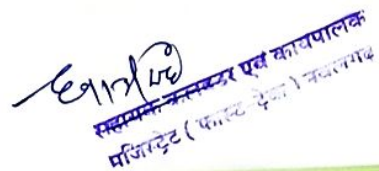 सहायक कलक्टर एवं कार्यपालक
मजिस्ट्रेट ( फास्ट-ट्रेक )